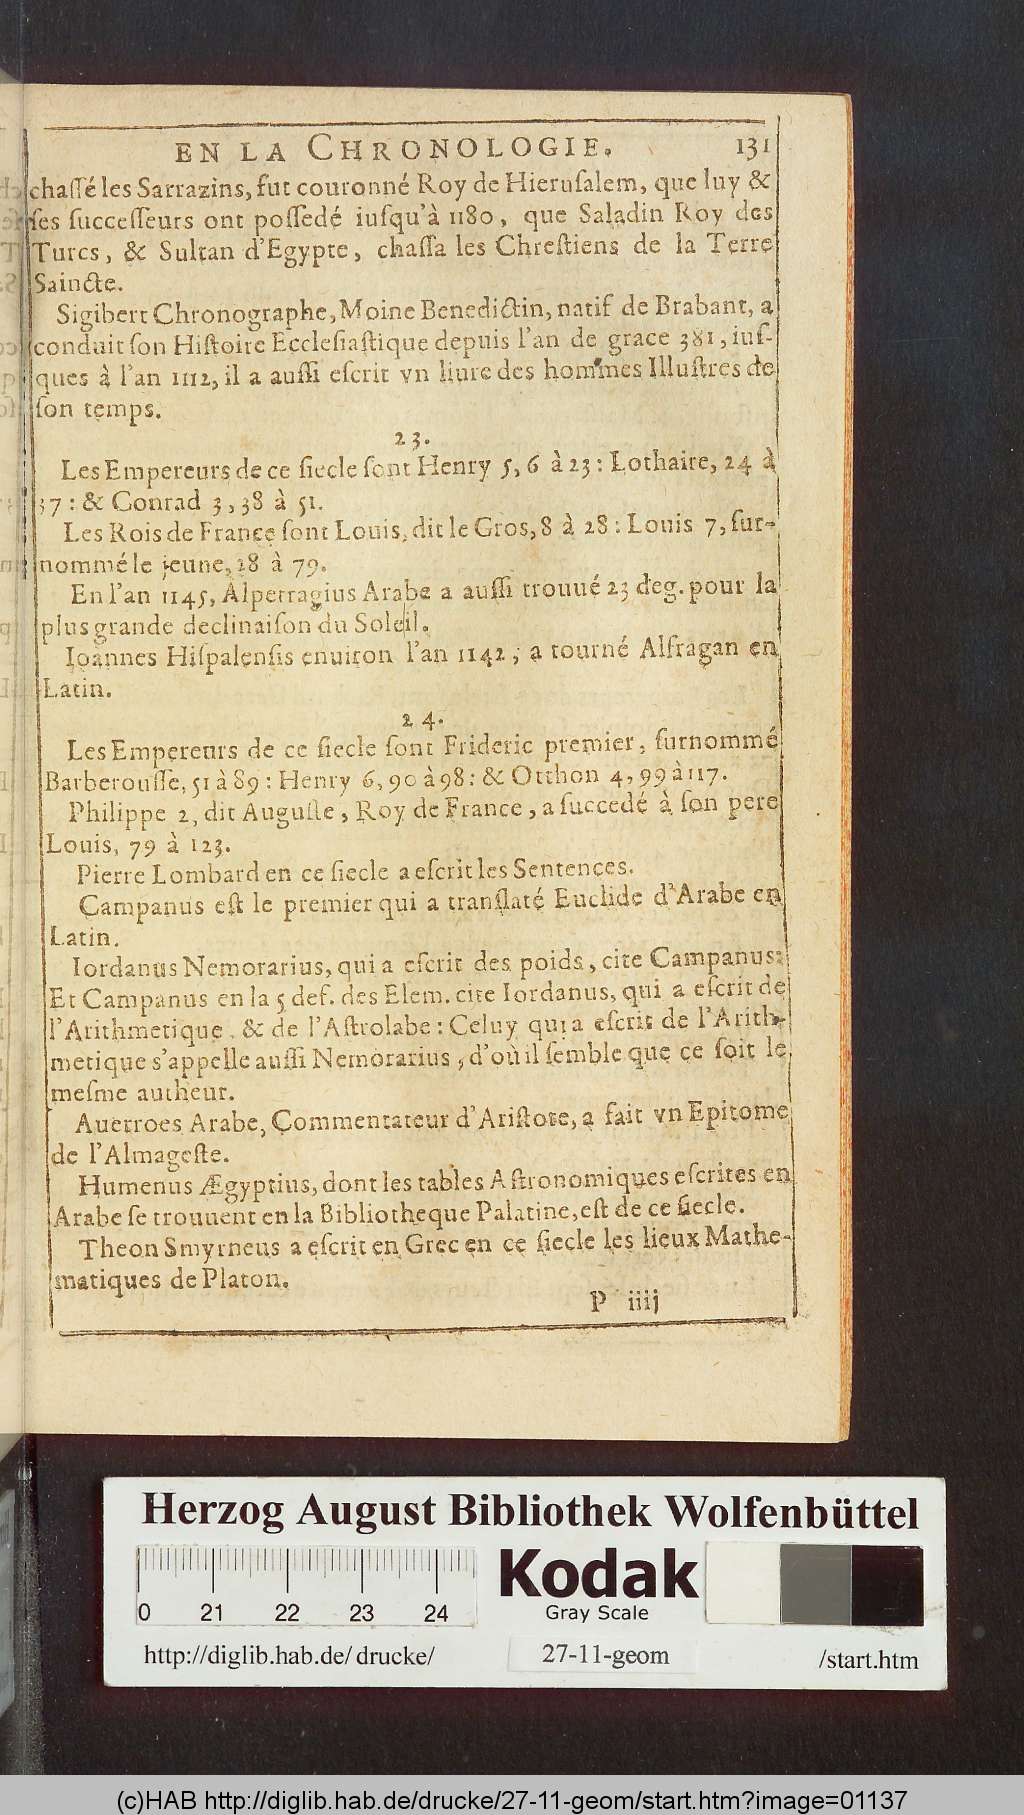 EN LA CHRONOLOGIE. 131
chaſſé les Sarrazins, fut couronné Roy de Hieruſalem, que luy &
ſes ſucceſſeurs ont poſſedé iuſqu'à 1180, que Saladin Roy des
Turcs, & Sultan d'Egypte, chaſſa les Chreſtiens de la Terre
Saincte.
Sigibert Chronographe, Moine Benedictin, natif de Brabant, a
conduit ſon Hiſtoire Eccleſiaſtique depuis l'an de grace 381, iuſ-
ques à l'an 1112, il a auſſi eſcrit vn liure des hommes Illuſtres de
ſon temps.
23.
Les Empereurs de ce ſiecle ſont Henry 5, 6 à 23: Lothaire, 24 à
37: & Conrad 3, 38 à 51.
Les Rois de France ſont Louis, dit le Gros, 8 à 28: Louis 7, ſur-
nommé le jeune, 28 à 79.
En l'an 1145, Alpetragius Arabe a auſſi trouué 23 deg. pour la
plus grande declinaiſon du Soleil.
Ioannes Hiſpalenſis enuiron l'an 1142, a tourné Alfragan en
Latin.
24.
Les Empereurs de ce ſiecle ſont Frideric premier, ſurnommé
Barberouſſe, 51 à 89: Henry 6, 90 à 98: & Otthon 4, 99 à 117.
Philippe 2, dit Auguſte, Roy de France, a ſuccedé à ſon pere
Louis, 79 à 123.
Pierre Lombard en ce ſiecle a eſcrit les Sentences.
Campanus eſt le premier qui a tranſlaté Euclide d'Arabe en
Latin.
Iordanus Nemorarius, qui a eſcrit des poids, cite Campanus:
Et Campanus en la 5 def. des Elem. cite Iordanus, qui a eſcrit de
l'Arithmetique, & de l'Aſtrolabe: Celuy qui a eſcrit de l'Arith-
metique s'appelle auſſi Nemorarius, d'où il ſemble que ce ſoit le
meſme autheur.
Auerroes Arabe, Commentateur d'Ariſtote, a fait vn Epitome
de l'Almageſte.
Humenus Ægyptius, dont les tables Aſtronomiques eſcrites en
Arabe ſe trouuent en la Bibliotheque Palatine, eſt de ce ſiecle.
Theon Smyrneus a eſcrit en Grec en ce ſiecle les lieux Mathe-
matiques de Platon.
P iiij
Herzog August Bibliothek Wolfenbüttel
0 21 22 23 24
Kodak
Gray Scale
http://diglib.hab.de/drucke/ 27-11-geom /start.htm
(c)HAB http://diglib.hab.de/drucke/27-11-geom/start.htm?image=01137